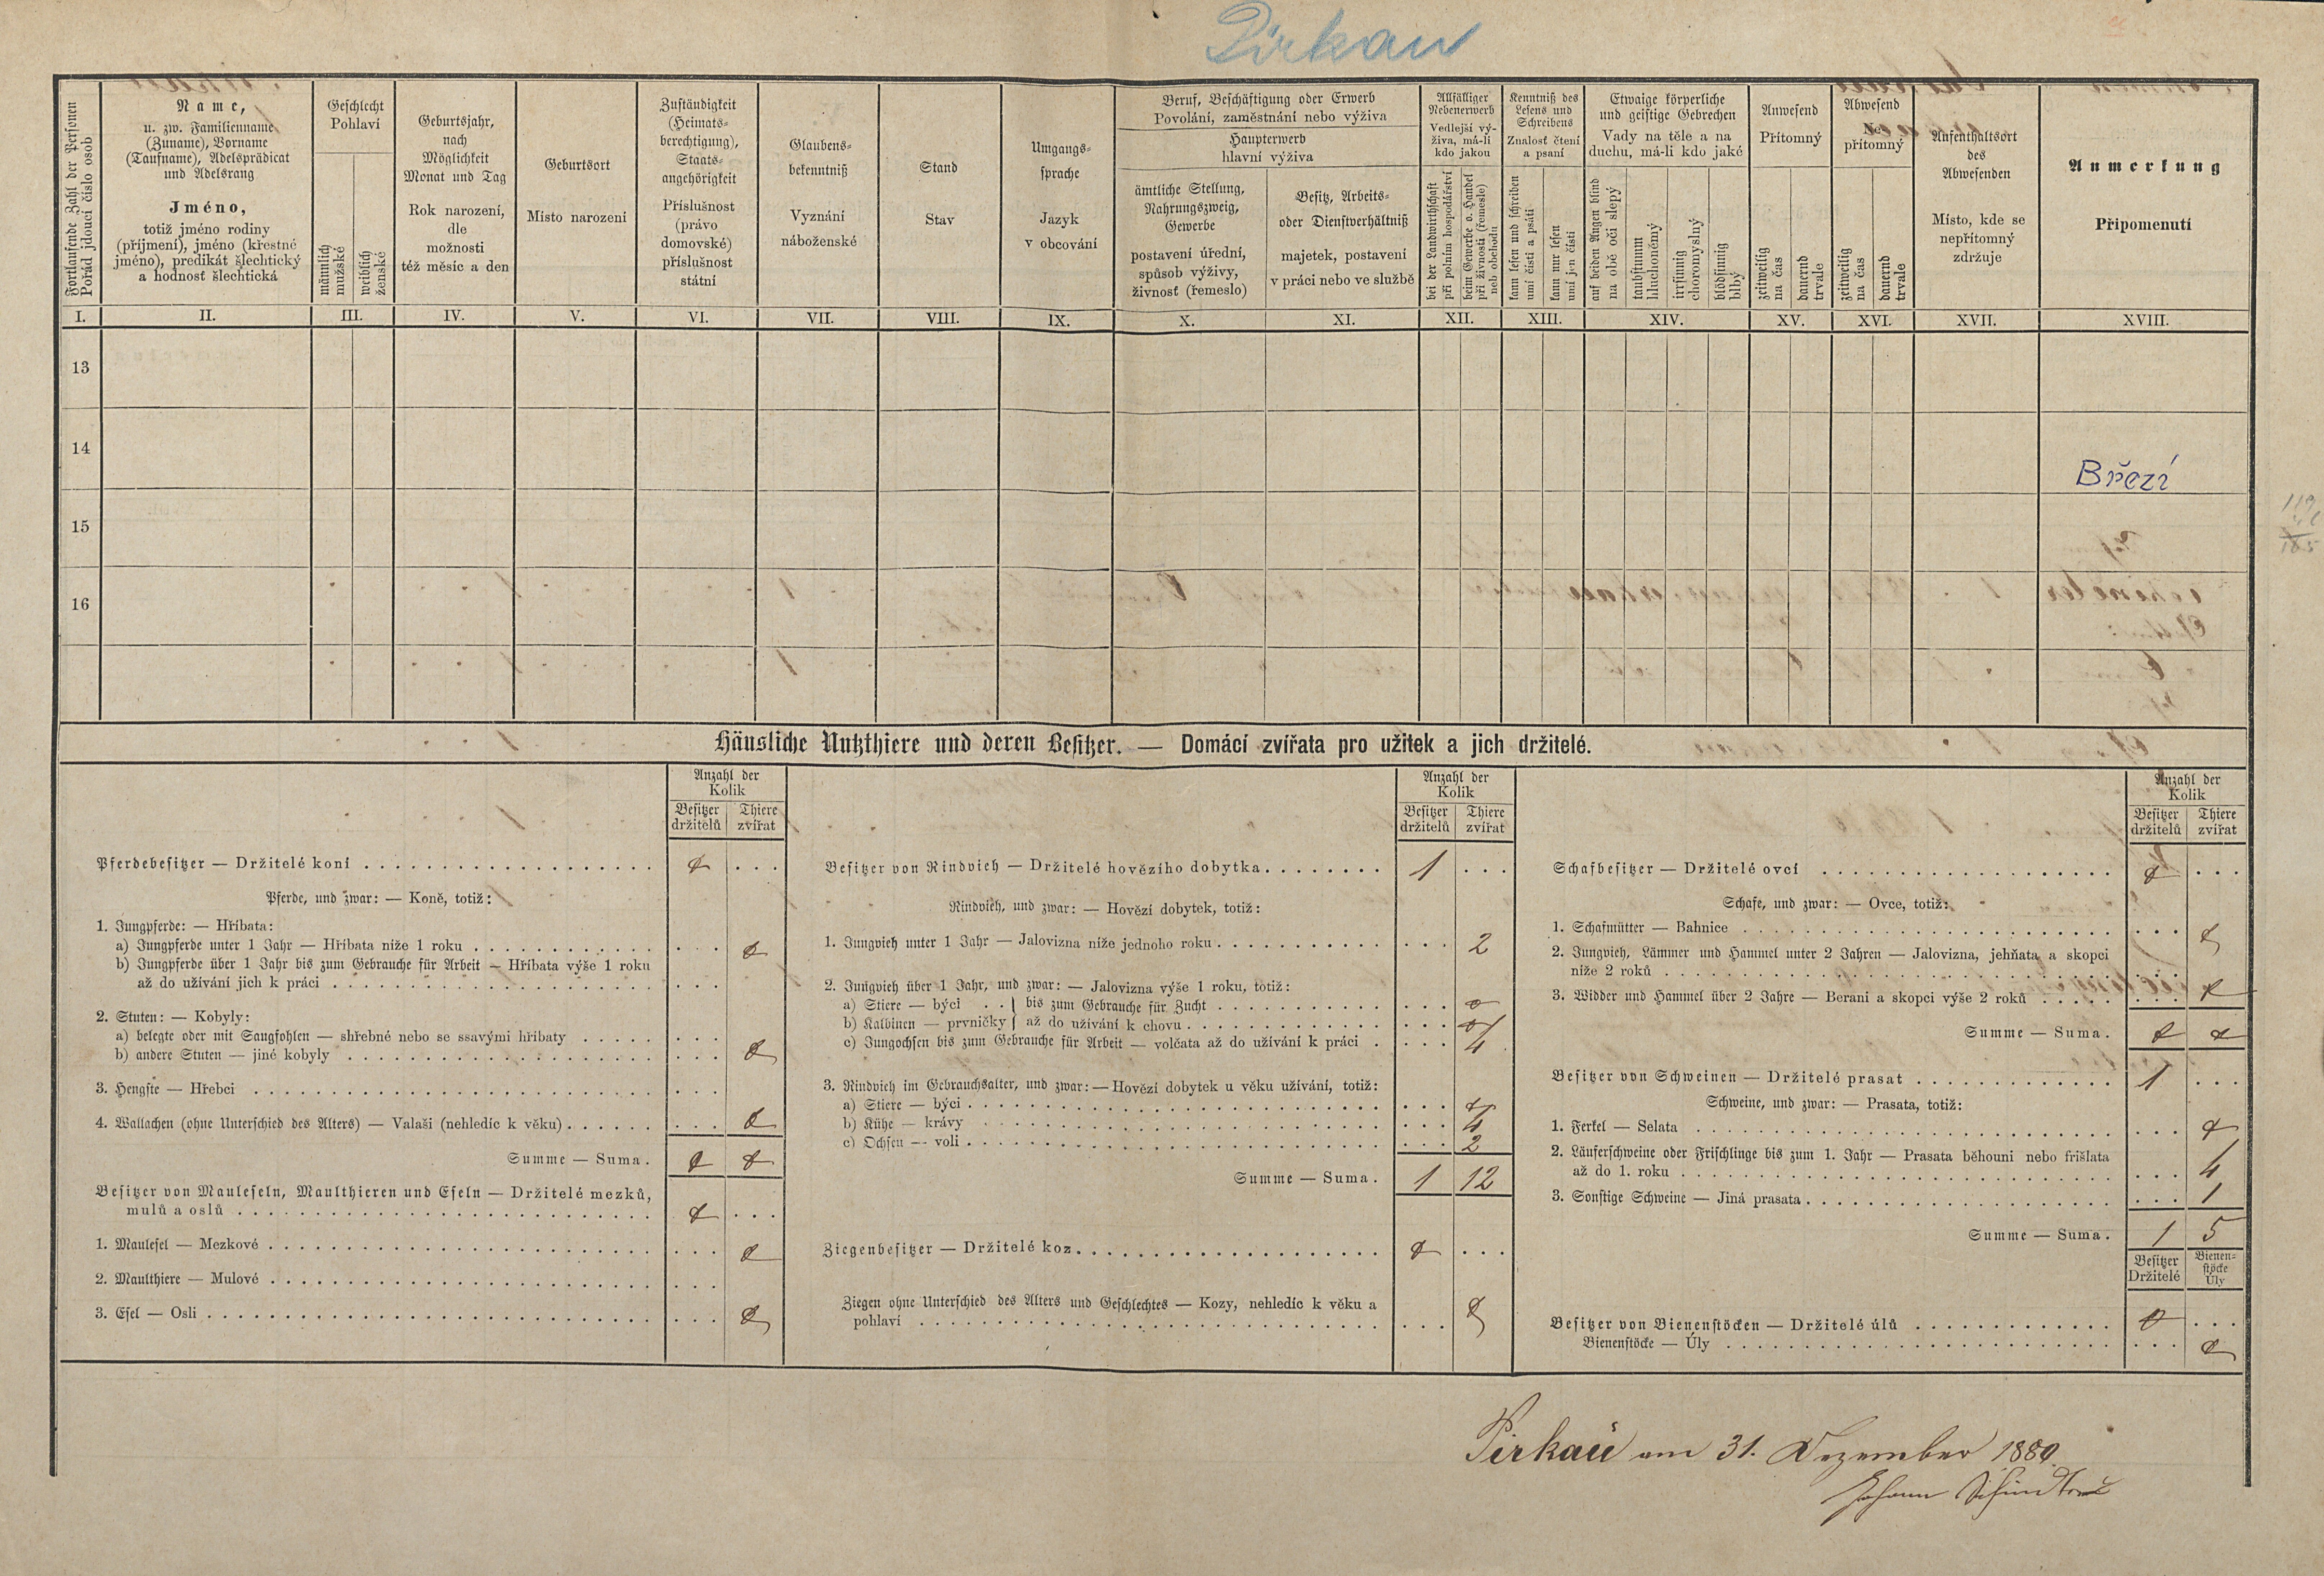 Pirkau
Fortlaufende Zahl der Personen
Pořád jdoucí číslo osob
Name,
u. zw. Familienname
(Zuname), Vorname
(Taufname), Adelsprädicat
und Adelsrang
Jméno,
totiž jméno rodiny
(příjmení), jméno (křestné
jméno), predikát šlechtický
a hodnost šlechtická
Geschlecht
Pohlaví
männlich
mužské
weiblich
ženské
Geburtsjahr,
nach
Möglichkeit
Monat und Tag
Rok narození,
dle
možnosti
též měsíc a den
Geburtsort
Místo narození
Zuständigkeit
(Heimats-
berechtigung),
Staats-
angehörigkeit
Příslušnost
(právo
domovské)
příslušnost
státní
Glaubens-
bekenntniß
Vyznání
náboženské
Stand
Stav
Umgangs-
sprache
Jazyk
v obcování
Beruf, Beschäftigung oder Erwerb
Povolání, zaměstnání nebo výživa
Haupterwerb
hlavní výživa
ämtliche Stellung,
Nahrungszweig,
Gewerbe
postavení úřední,
spůsob výživy,
živnosť (řemeslo)
Besitz, Arbeits-
oder Dienstverhältniß
majetek, postavení
v práci nebo ve službě
Allfälliger
Nebenerwerb
Vedlejší vý-
živa, má-li
kdo jakou
bei der Landwirthschaft
při polním hospodářství
beim Gewerbe o. Handel
při živnosti (řemesle)
neb obchodu
Kenntniß des
Lesens und
Schreibens
Znalosť čtení
a psaní
kann lesen und schreiben
umí čísti a psáti
kann nur lesen
umí jen čísti
Etwaige körperliche
und geistige Gebrechen
Vady na těle a na
duchu, má-li kdo jaké
auf beiden Augen blind
na obě oči slepý
taubstumm
hluchoněmý
irrsinnig
choromyslný
blödsinnig
blbý
Anwesend
Přítomný
zeitweilig
na čas
dauernd
trvale
Abwesend
Ne-
přítomný
zeitweilig
na čas
dauernd
trvale
Aufenthaltsort
des
Abwesenden
Místo, kde se
nepřítomný
zdržuje
Anmerkung
Připomenutí
I. II. III. IV. V. VI. VII. VIII. IX. X. XI. XII. XIII. XIV. XV. XVI. XVII. XVIII.
13
14
Březí
15
16
Häusliche Nutzthiere und deren Besitzer. — Domácí zvířata pro užitek a jich držitelé.
Anzahl der
Kolik
Besitzer Thiere
držitelů zvířat
Pferdebesitzer — Držitelé koní 0
Pferde, und zwar: — Koně, totiž:
1. Jungpferde: — Hříbata:
a) Jungpferde unter 1 Jahr — Hříbata níže 1 roku 0
b) Jungpferde über 1 Jahr bis zum Gebrauche für Arbeit — Hříbata výše 1 roku
až do užívání jich k práci
2. Stuten: — Kobyly:
a) belegte oder mit Saugfohlen — shřebné nebo se ssavými hříbaty
b) andere Stuten — jiné kobyly 0
3. Hengste — Hřebci
4. Wallachen (ohne Unterschied des Alters) — Valaši (nehledíc k věku) 0
Summe — Suma. 0 0
Besitzer von Mauleseln, Maulthieren und Eseln — Držitelé mezků,
mulů a oslů 0
1. Maulesel — Mezkové 0
2. Maulthiere — Mulové
3. Esel — Osli 0
Anzahl der
Kolik
Besitzer Thiere
držitelů zvířat
Besitzer von Rindvieh — Držitelé hovězího dobytka 1
Rindvieh, und zwar: — Hovězí dobytek, totiž:
1. Jungvieh unter 1 Jahr — Jalovizna níže jednoho roku 2
2. Jungvieh über 1 Jahr, und zwar: — Jalovizna výše 1 roku, totiž:
a) Stiere — býci } bis zum Gebrauche für Zucht 0
b) Kalbinen — prvničky } až do užívání k chovu 0
c) Jungochsen bis zum Gebrauche für Arbeit — volčata až do užívání k práci 4
3. Rindvieh im Gebrauchsalter, und zwar: — Hovězí dobytek u věku užívání, totiž:
a) Stiere — býci 0
b) Kühe — krávy 4
c) Ochsen — voli 2
Summe — Suma. 1 12
Ziegenbesitzer — Držitelé koz 0
Ziegen ohne Unterschied des Alters und Geschlechtes — Kozy, nehledíc k věku a
pohlaví 0
Anzahl der
Kolik
Besitzer Thiere
držitelů zvířat
Schafbesitzer — Držitelé ovcí 0
Schafe, und zwar: — Ovce, totiž:
1. Schafmütter — Bahnice 0
2. Jungvieh, Lämmer und Hammel unter 2 Jahren — Jalovizna, jehňata a skopci
níže 2 roků
3. Widder und Hammel über 2 Jahre — Berani a skopci výše 2 roků 0
Summe — Suma. 0 0
Besitzer von Schweinen — Držitelé prasat 1
Schweine, und zwar: — Prasata, totiž:
1. Ferkel — Selata 0
2. Läuferschweine oder Frischlinge bis zum 1. Jahr — Prasata běhouni nebo frišlata
až do 1. roku 4
3. Sonstige Schweine — Jiná prasata 1
Summe — Suma. 1 5
Besitzer Bienen-
stöcke
Držitelé Úly
Besitzer von Bienenstöcken — Držitelé úlů 0
Bienenstöcke — Úly 0
Pirkau am 31. Dezember 1880.
Johann Schindler